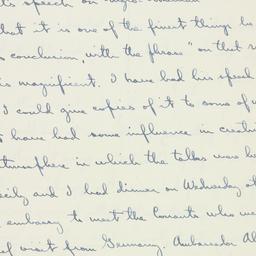 speech on
that it is one of the finest things he
conclusion, with the phrase "on that
is magnificent. I have had his speech
I could give copies of it to some of
have had some influence in creating
atmosphere in which the talks were he
and I had dinner on Wednesday at
embassy to meet the Conants who we
visit from Germany. Ambassador Al